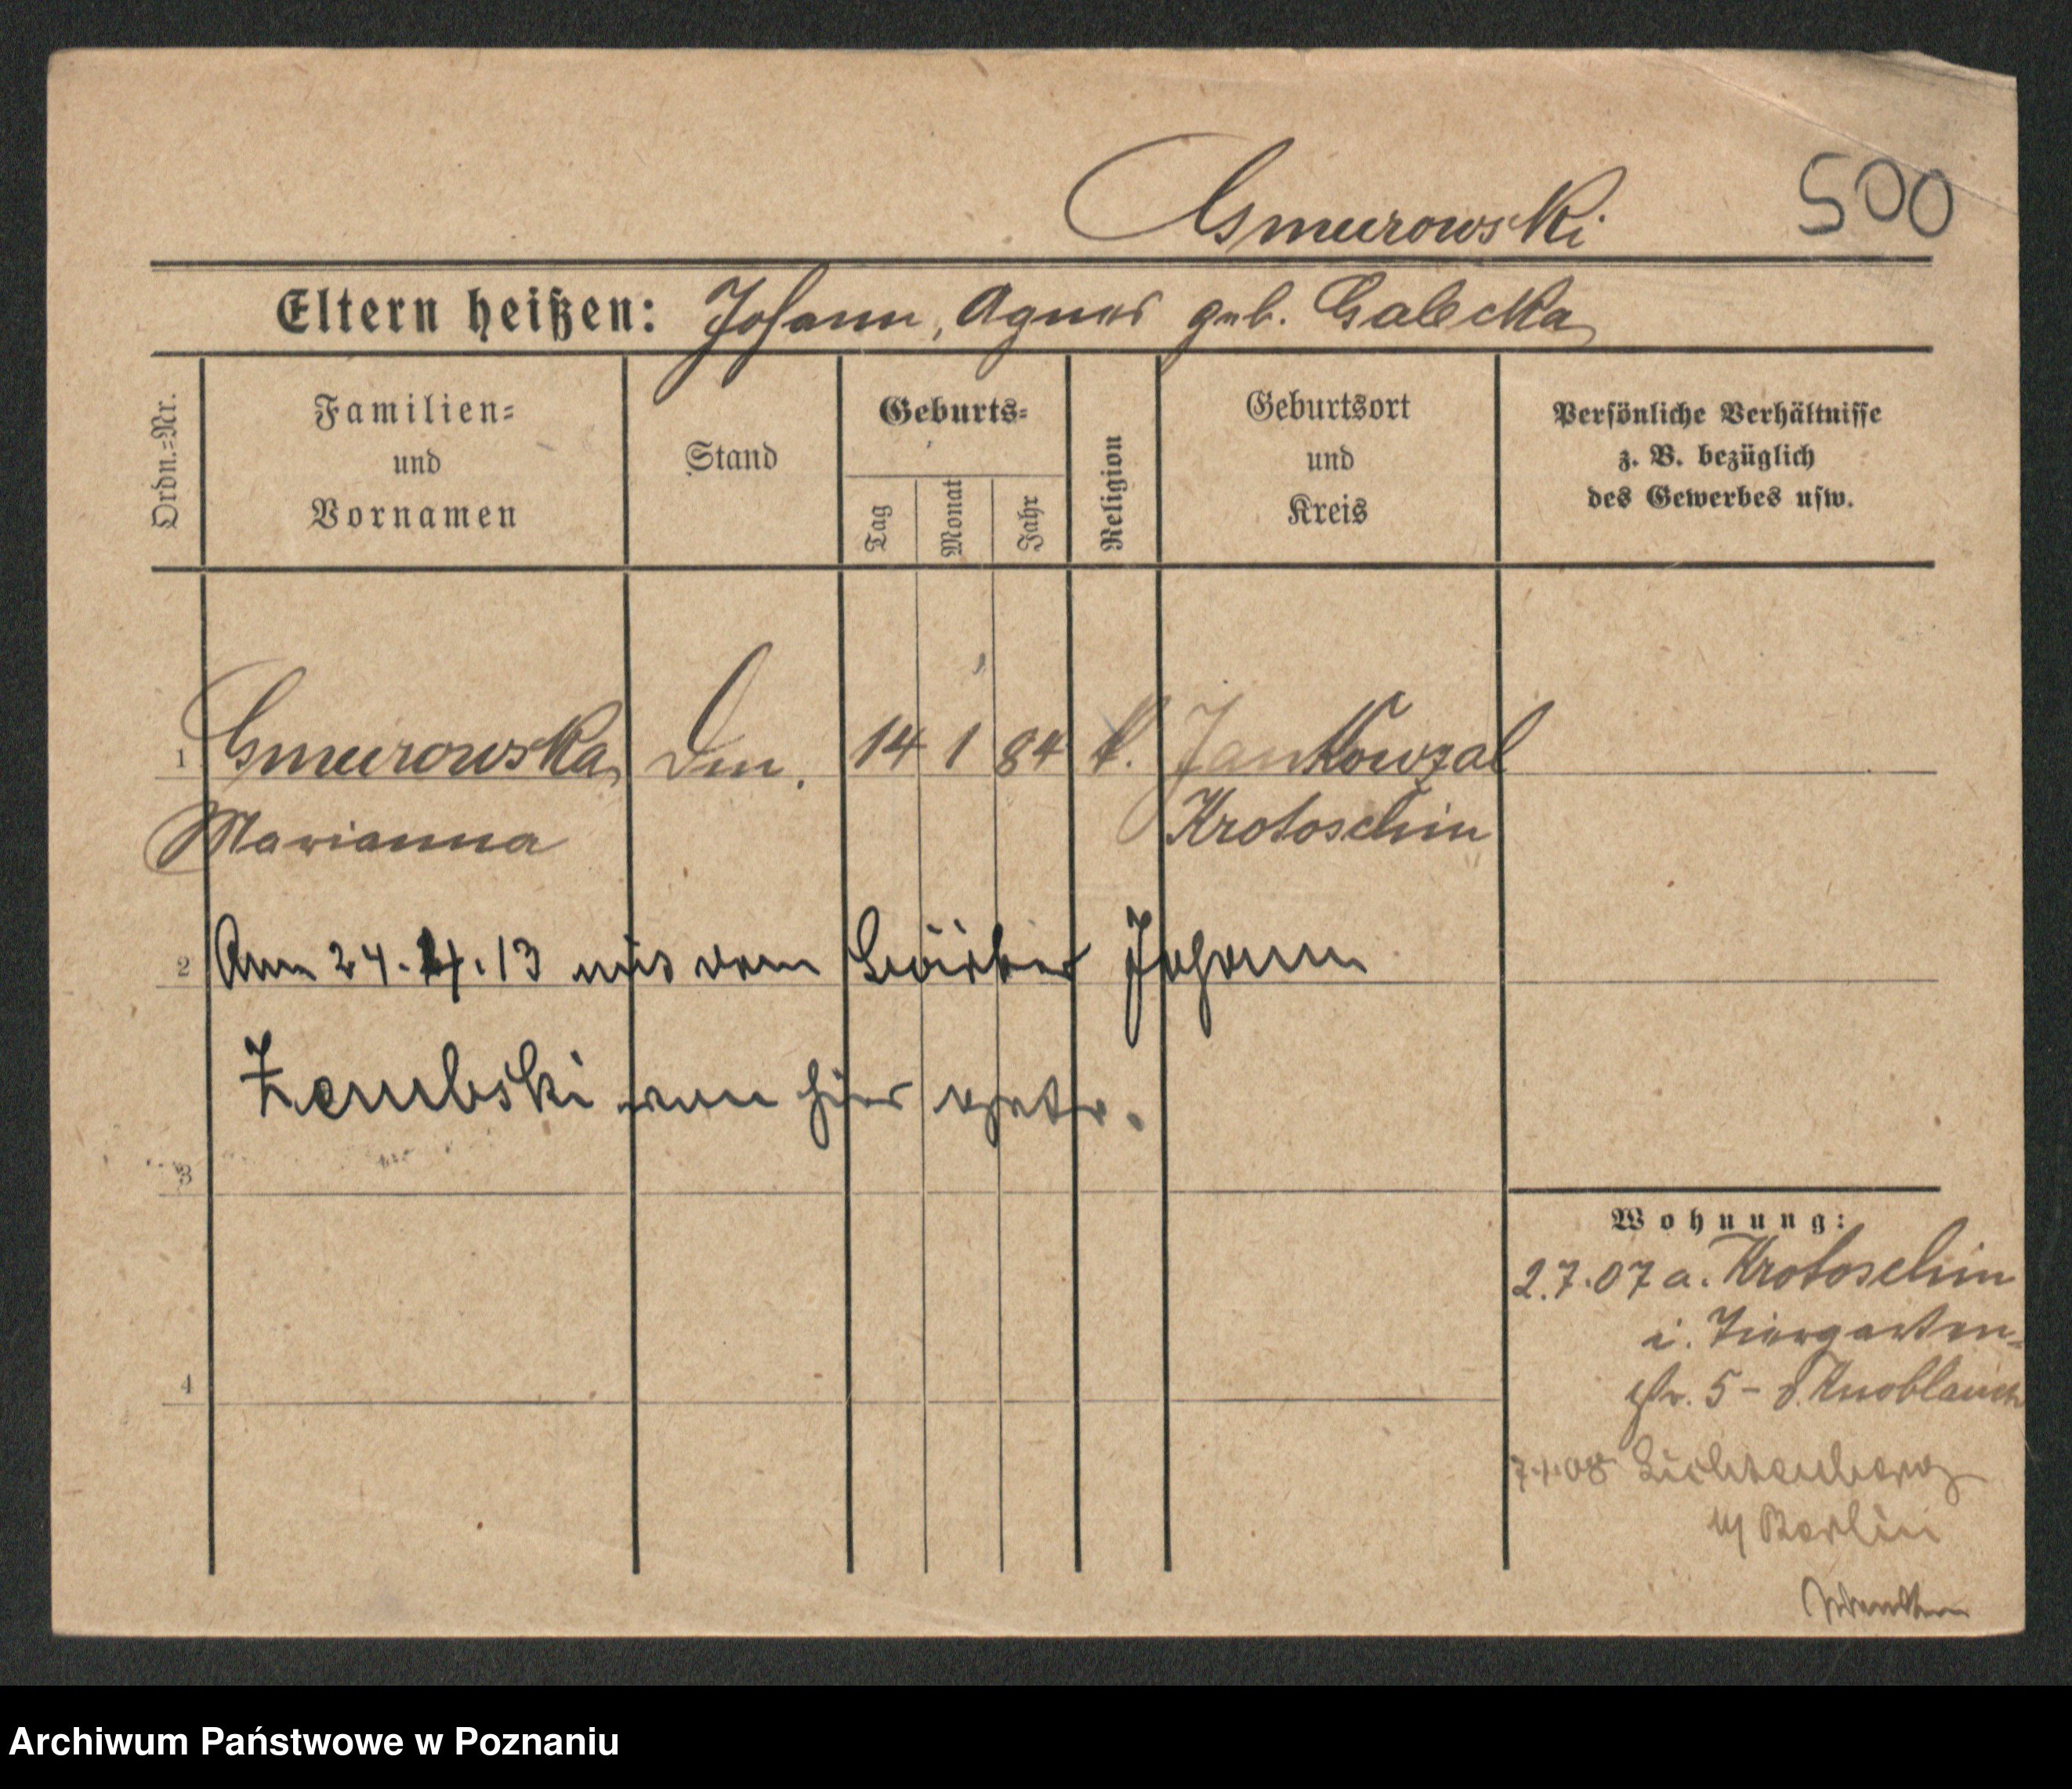 Gmurowski 500
Eltern heißen: Johann, Agnes geb. Galecka
Ordn.=Nr.
Familien=
und
Vornamen
Stand
Geburts=
Tag
Monat
Jahr
Religion
Geburtsort
und
Kreis
Persönliche Verhältnisse
z. B. bezüglich
des Gewerbes usw.
1 Gmurowska, 14 1 84 k. Jankow zal
Marianna Krotoschin
2 Am 24. 4. 13 mit dem Johann
Zembski von hier
3
Wohnung:
2.7.07 a. Krotoschin
i. Tiergarten=
str. 5 - b. Knoblauch
4
08 Lichtenberg
b/ Berlin
Archiwum Państwowe w Poznaniu